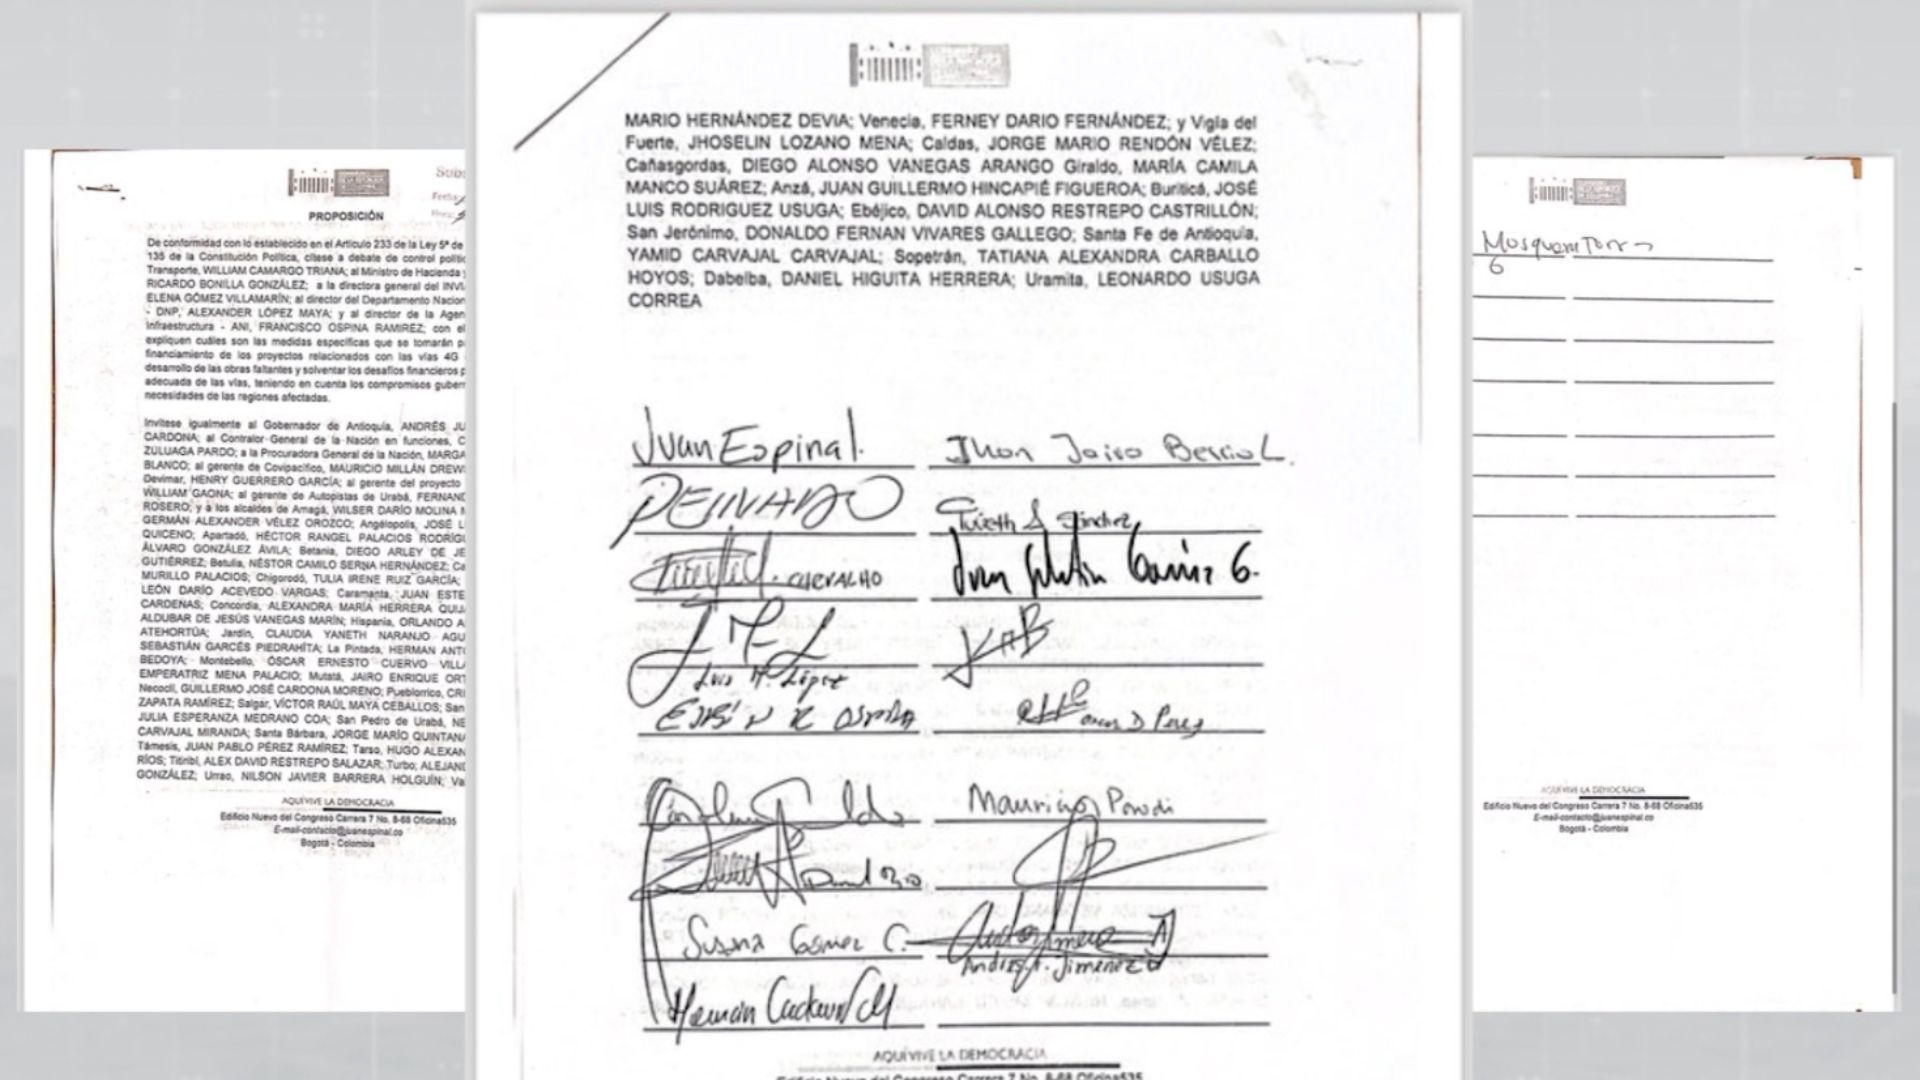 PROPOSICIÓN
De conformidad con lo establecido en el Artículo 233 de la Ley 5ª de
135 de la Constitución Política, cítese a debate de control polític
Transporte, WILLIAM CAMARGO TRIANA; al Ministro de Hacienda
RICARDO BONILLA GONZÁLEZ; a la directora general del INVI
ELENA GÓMEZ VILLAMARÍN; al director del Departamento Nacion
- DNP, ALEXANDER LÓPEZ MAYA; y al director de la Agen
Infraestructura - ANI, FRANCISCO OSPINA RAMIREZ; con el
expliquen cuáles son las medidas específicas que se tomarán p
financiamiento de los proyectos relacionados con las vías 4G
desarrollo de las obras faltantes y solventar los desafíos financieros p
adecuada de las vías, teniendo en cuenta los compromisos gubern
necesidades de las regiones afectadas.
Invítese igualmente al Gobernador de Antioquia, ANDRÉS JU
CARDONA; al Contralor General de la Nación en funciones, C
ZULUAGA PARDO; a la Procuradora General de la Nación, MARGA
BLANCO; al gerente de Covipacífico, MAURICIO MILLÁN DREW
Devimar, HENRY GUERRERO GARCÍA; al gerente del proyecto
WILLIAM GAONA; al gerente de Autopistas de Urabá, FERNAND
ROSERO; y a los alcaldes de Amagá, WILSER DARÍO MOLINA M
GERMÁN ALEXANDER VÉLEZ OROZCO; Angélopolis, JOSÉ L
QUICENO; Apartadó, HÉCTOR RANGEL PALACIOS RODRÍG
ÁLVARO GONZÁLEZ ÁVILA; Betania, DIEGO ARLEY DE JE
GUTIÉRREZ; Betulia, NÉSTOR CAMILO SERNA HERNÁNDEZ; Ca
MURILLO PALACIOS; Chigorodó, TULIA IRENE RUIZ GARCÍA;
LEÓN DARÍO ACEVEDO VARGAS; Caramanta, JUAN ESTE
CARDENAS; Concordia, ALEXANDRA MARÍA HERRERA QUIJ
ALDUBAR DE JESÚS VANEGAS MARÍN; Hispania, ORLANDO A
ATEHORTÚA; Jardín, CLAUDIA YANETH NARANJO AGU
SEBASTIÁN GARCÉS PIEDRAHÍTA; La Pintada, HERMAN ANTO
BEDOYA; Montebello, ÓSCAR ERNESTO CUERVO VILL
EMPERATRIZ MENA PALACIO; Mutatá, JAIRO ENRIQUE ORT
Necoclí, GUILLERMO JOSÉ CARDONA MORENO; Pueblorrico, CRI
ZAPATA RAMÍREZ; Salgar, VÍCTOR RAÚL MAYA CEBALLOS; San
JULIA ESPERANZA MEDRANO COA; San Pedro de Urabá, NE
CARVAJAL MIRANDA; Santa Bárbara, JORGE MARÍO QUINTANA
Támesis, JUAN PABLO PÉREZ RAMÍREZ; Tarso, HUGO ALEXAN
RÍOS; Titiribí, ALEX DAVID RESTREPO SALAZAR; Turbo; ALEJAND
GONZÁLEZ; Urrao, NILSON JAVIER BARRERA HOLGUÍN; Va
AQUÍ VIVE LA DEMOCRACIA
Edificio Nuevo del Congreso Carrera 7 No. 8-68 Oficina535
E-mail-contacto@juanespinal.co
Bogotá - Colombia
MARIO HERNÁNDEZ DEVIA; Venecia, FERNEY DARIO FERNÁNDEZ; y Vigía del
Fuerte, JHOSELIN LOZANO MENA; Caldas, JORGE MARIO RENDÓN VÉLEZ;
Cañasgordas, DIEGO ALONSO VANEGAS ARANGO Giraldo, MARÍA CAMILA
MANCO SUÁREZ; Anzá, JUAN GUILLERMO HINCAPIÉ FIGUEROA; Buriticá, JOSÉ
LUIS RODRIGUEZ USUGA; Ebéjico, DAVID ALONSO RESTREPO CASTRILLÓN;
San Jerónimo, DONALDO FERNAN VIVARES GALLEGO; Santa Fe de Antioquia,
YAMID CARVAJAL CARVAJAL; Sopetrán, TATIANA ALEXANDRA CARBALLO
HOYOS; Dabeiba, DANIEL HIGUITA HERRERA; Uramita, LEONARDO USUGA
CORREA
Juan Espinal. Jhon Jairo Berrio L.
PEINADO
CHEVALHO
Luis M. López
Oscar D Perez
Mauricio Parodi
Susana Gómez C.
Andres F. Jimenez
Hernán Cadavid
AQUÍ VIVE LA DEMOCRACIA
Edificio Nuevo del Congreso Carrera 7 No. 8-68 Oficina535
AQUÍ VIVE LA DEMOCRACIA
Edificio Nuevo del Congreso Carrera 7 No. 8-68 Oficina535
E-mail-contacto@juanespinal.co
Bogotá - Colombia